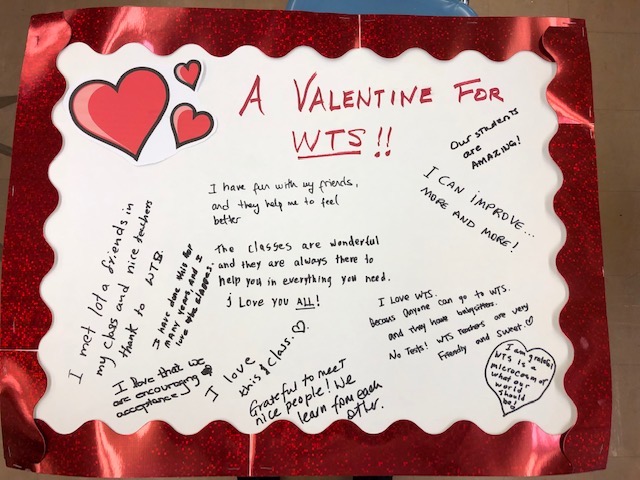 A VALENTINE FOR
WTS!!
Our students
are
AMAZING!
I CAN IMPROVE...
MORE AND MORE!
I have fun with my friends,
and they help me to feel
better
The classes are wonderful
and they are always there to
help you in everything you need.
I Love you ALL!
I met lot a friends in
my class and nice teachers
thank to WTS.
I have done this for
many years, and I
love the classes.
I love that we
are encouraging
acceptance
I love
this class.
Grateful to meet
nice people! We
learn from each
other.
I Love WTS.
Becaus Anyone can go to WTS.
and they have babysitters.
No Tests! WTS Teachers are very
Friendly and Sweet
I am grateful
WTS is a
microcosm of
what our
world
should
be